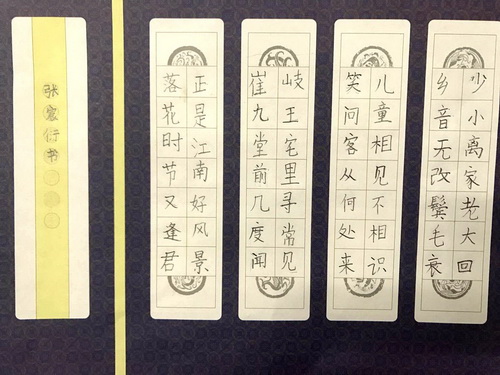 少小离家老大回
乡音无改鬓毛衰
儿童相见不相识
笑问客从何处来
岐王宅里寻常见
崔九堂前几度闻
正是江南好风景
落花时节又逢君
张行书